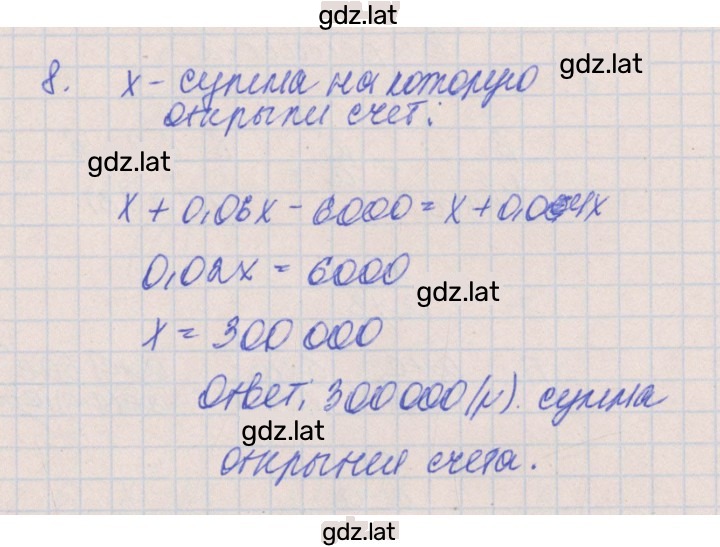 gdz.lat
8. x - сумма на которую
gdz.lat
открыли счет:
gdz.lat
x + 0,06x - 6000 = x + 0,04x
0,02x = 6000
gdz.lat
x = 300 000
Ответ: 300000 (р). сумма
gdz.lat
открытия счета.
gdz.lat